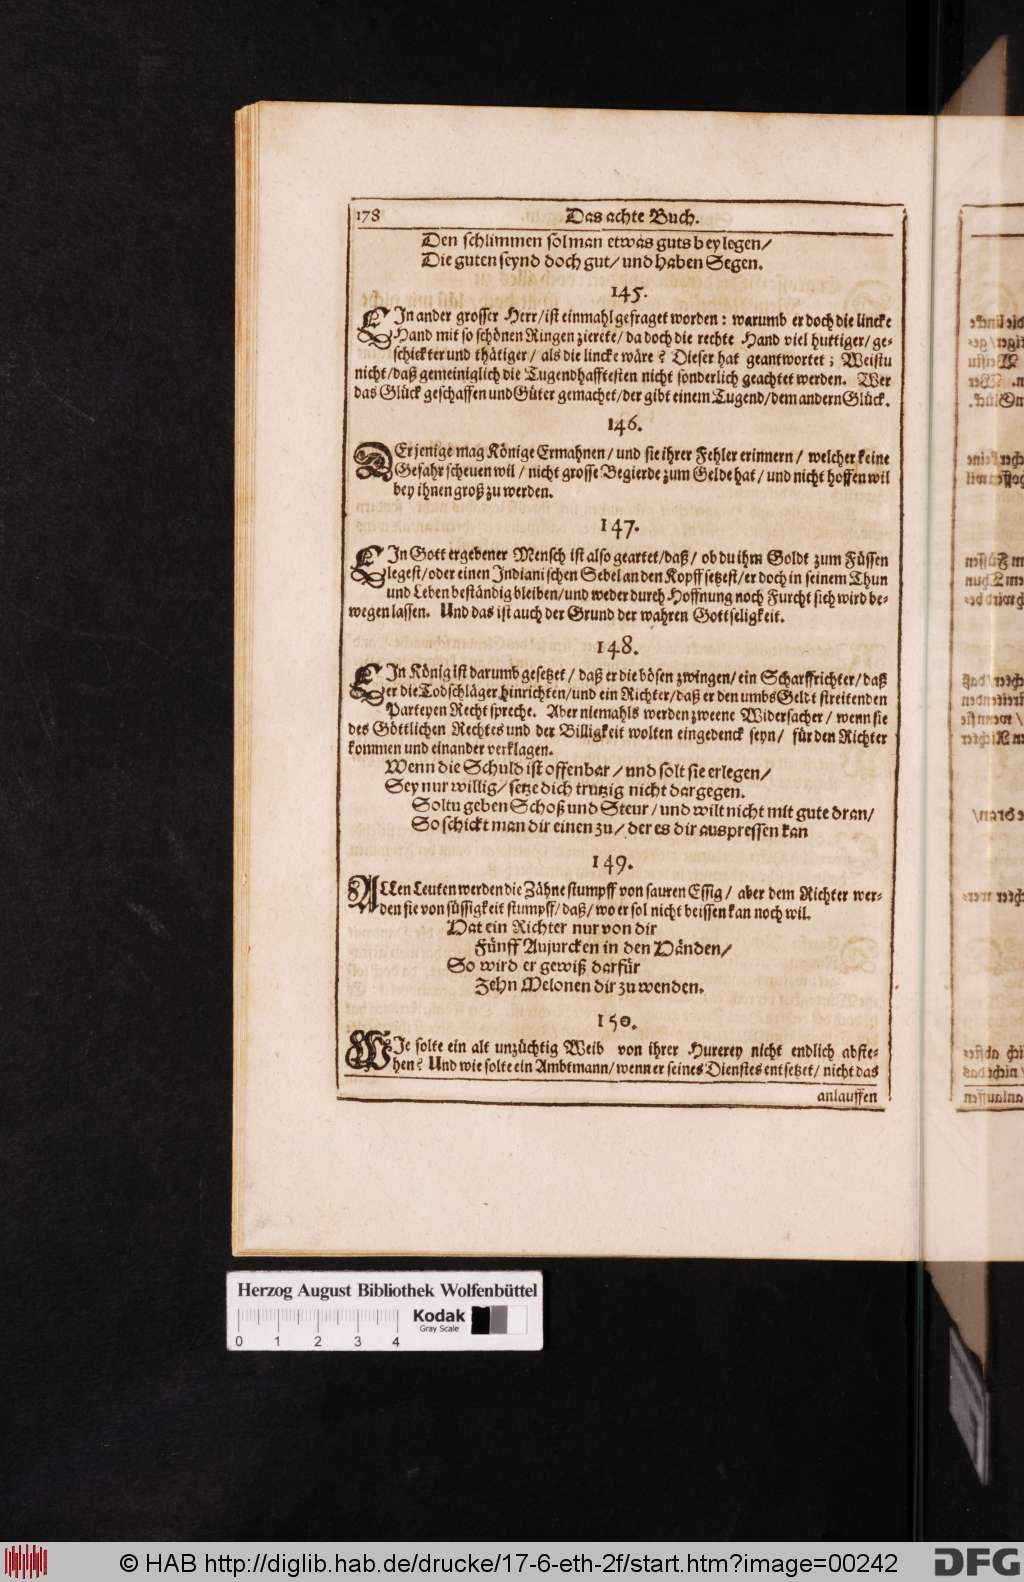 178 Das achte Buch.
Den schlimmen sol man etwas guts beylegen/
Die guten seynd doch gut/ und haben Segen.
145.
EIn ander grosser Herr/ ist einmahl gefraget worden: warumb er doch die lincke
Hand mit so schönen Ringen zierete/ da doch die rechte Hand viel huttiger/ ge-
schickter und thätiger/ als die lincke wäre? Dieser hat geantwortet; Weistu
nicht/ daß gemeiniglich die Tugendhafftesten nicht sonderlich geachtet werden. Wer
das Glück geschaffen und Güter gemachet/ der gibt einem Tugend/ dem andern Glück.
146.
DErjenige mag Könige Ermahnen/ und sie ihrer Fehler erinnern/ welcher keine
Gefahr scheuen wil/ nicht grosse Begierde zum Gelde hat/ und nicht hoffen wil
bey ihnen groß zu werden.
147.
EIn Gott ergebener Mensch ist also geartet/ daß/ ob du ihm Goldt zum Füssen
legest/ oder einen Indianischen Sebel an den Kopff setzest/ er doch in seinem Thun
und Leben beständig bleiben/ und weder durch Hoffnung noch Furcht sich wird be-
wegen lassen. Und das ist auch der Grund der wahren Gottseligkeit.
148.
EIn König ist darumb gesetzet/ daß er die bösen zwingen/ ein Scharffrichter/ daß
er die Todschläger hinrichten/ und ein Richter/ daß er den umbs Geldt streitenden
Parteyen Recht spreche. Aber niemahls werden zweene Widersacher/ wenn sie
des Göttlichen Rechtes und der Billigkeit wolten eingedenck seyn/ für den Richter
kommen und einander verklagen.
Wenn die Schuld ist offenbar/ und solt sie erlegen/
Sey nur willig/ setze dich trutzig nicht dargegen.
Soltu geben Schoß und Steur/ und wilt nicht mit gute dran/
So schickt man dir einen zu/ der es dir auspressen kan
149.
ALLen Leuten werden die Zähne stumpff von sauren Essig/ aber dem Richter wer-
den sie von süssigkeit stumpff/ daß/ wo er sol nicht beissen kan noch wil.
Hat ein Richter nur von dir
Fünff Aujurcken in den Händen/
So wird er gewiß darfür
Zehn Melonen dir zu wenden.
150.
WIe solte ein alt unzüchtig Weib von ihrer Hurerey nicht endlich abste-
hen? Und wie solte ein Ambtmann/ wenn er seines Dienstes entsetzet/ nicht das
anlauffen
Herzog August Bibliothek Wolfenbüttel
Kodak
Gray Scale
0 1 2 3 4
© HAB http://diglib.hab.de/drucke/17-6-eth-2f/start.htm?image=00242
DFG